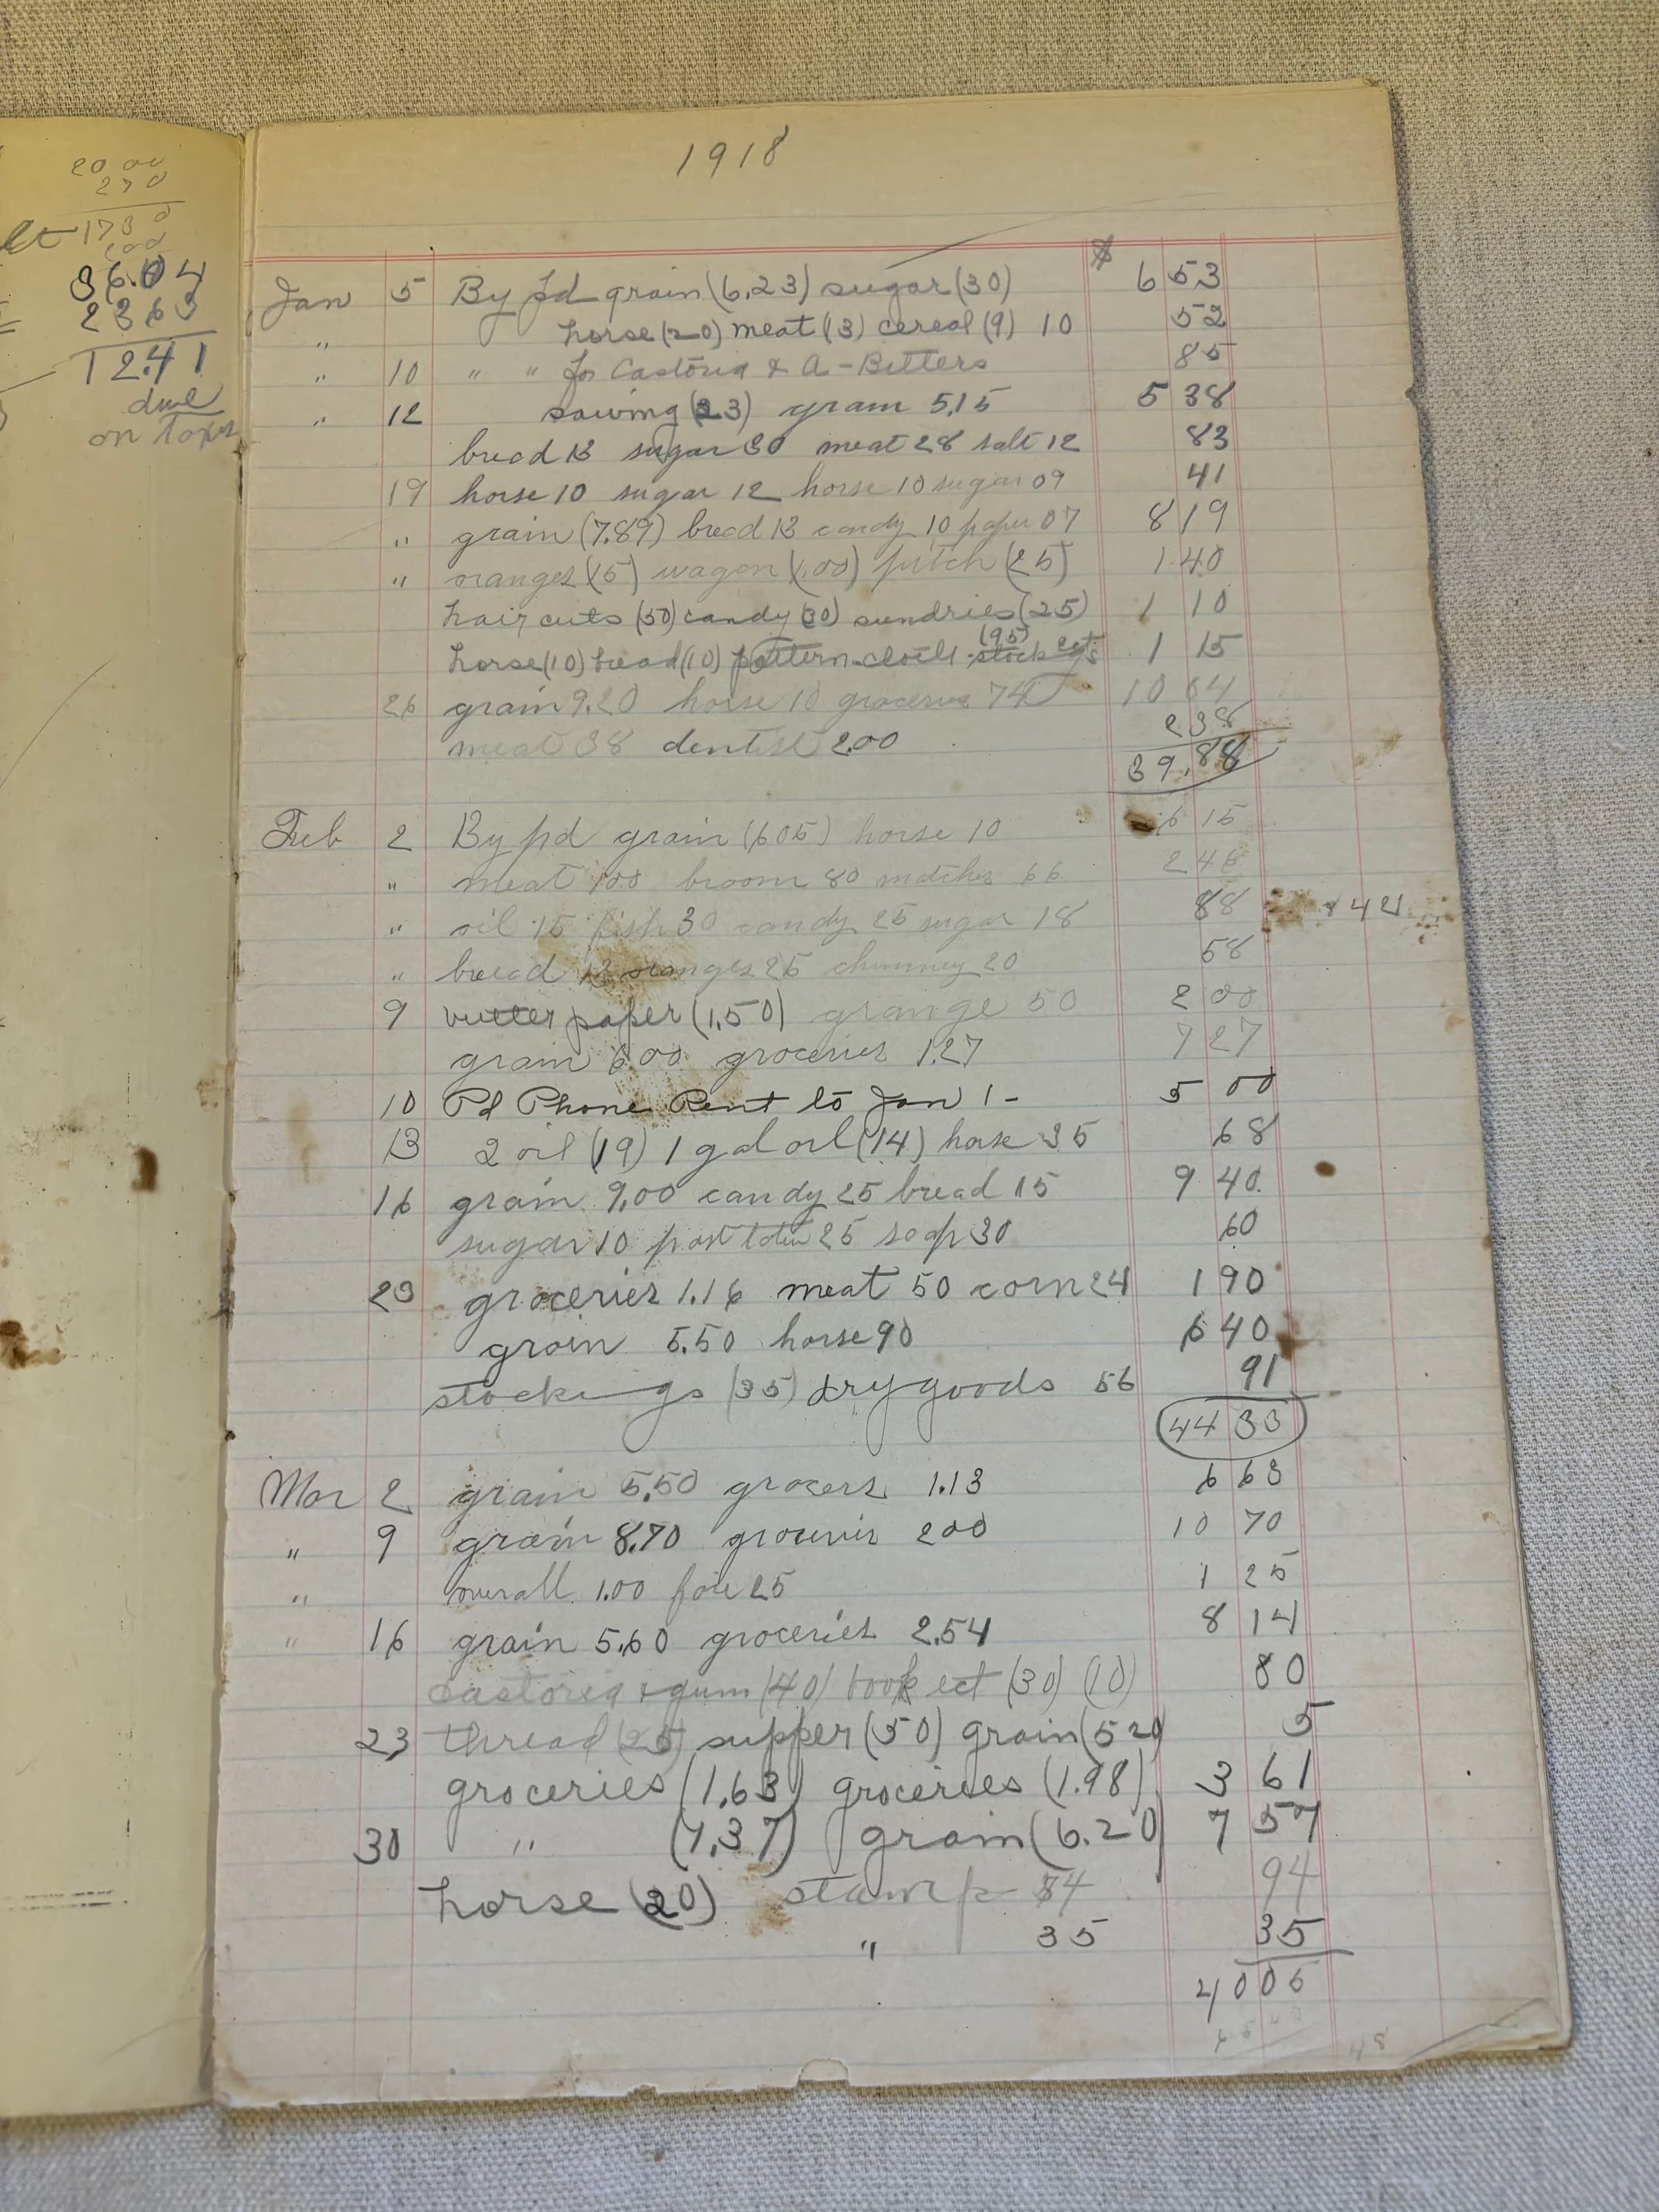 20 00
2 70
173 0
200
36.04
2363
12.41
due
on taxes
1918
$
Jan 5 By Pd grain (6.23) sugar (30) 6 53
" horse (20) meat (13) cereal (9) 10 52
" 10 " " for Castoria & A-Bitters 85
" 12 sawing (23) grain 5.15 5 38
bread 13 sugar 30 meat 28 salt 12 83
19 horse 10 sugar 12 horse 10 sugar 09 41
" grain (7.89) bread 13 candy 10 paper 07 8 19
" oranges (15) wagon (1.00) pitch (25) 1 40
hair cuts (50) candy (30) sundries (25) 1 10
horse (10) bread (10) pattern cloth stock ect (95) 1 15
26 grain 9.20 horse 10 groceries 74 10 04
meat 38 dentist 2.00 2 38
39.88
Feb 2 By pd grain (605) horse 10 6 15
" meat 100 broom 80 matches 66 2 46
" oil 15 fish 30 candy 25 sugar 18 88
" bread 13 oranges 25 chimney 20 58
9 butter paper (1.50) grange 50 2 00
grain 6.00 groceries 1.27 7 27
10 Pd Phone Rent to Jan 1 - 5 00
13 2 oil (19) 1 gal oil (14) horse 35 68
16 grain 9.00 candy 25 bread 15 9 40
sugar 10 25 soap 30 60
23 groceries 1.16 meat 50 corn 24 1 90
grain 5.50 horse 90 6 40
stockings (35) dry goods 56 91
44 33
Mar 2 grain 5.50 grocers 1.13 6 63
" 9 grain 8.70 groceries 200 10 70
" overall 1.00 25 1 25
" 16 grain 5.60 groceries 2.54 8 14
castoria & gum (40) book ect (30) (10) 80
23 thread (25) supper (50) grain (520) 5
groceries (1.63) groceries (1.98) 3 61
30 " (1.37) grain (6.20) 7 57
horse (20) stamps 54 94
" 35 35
4006
48